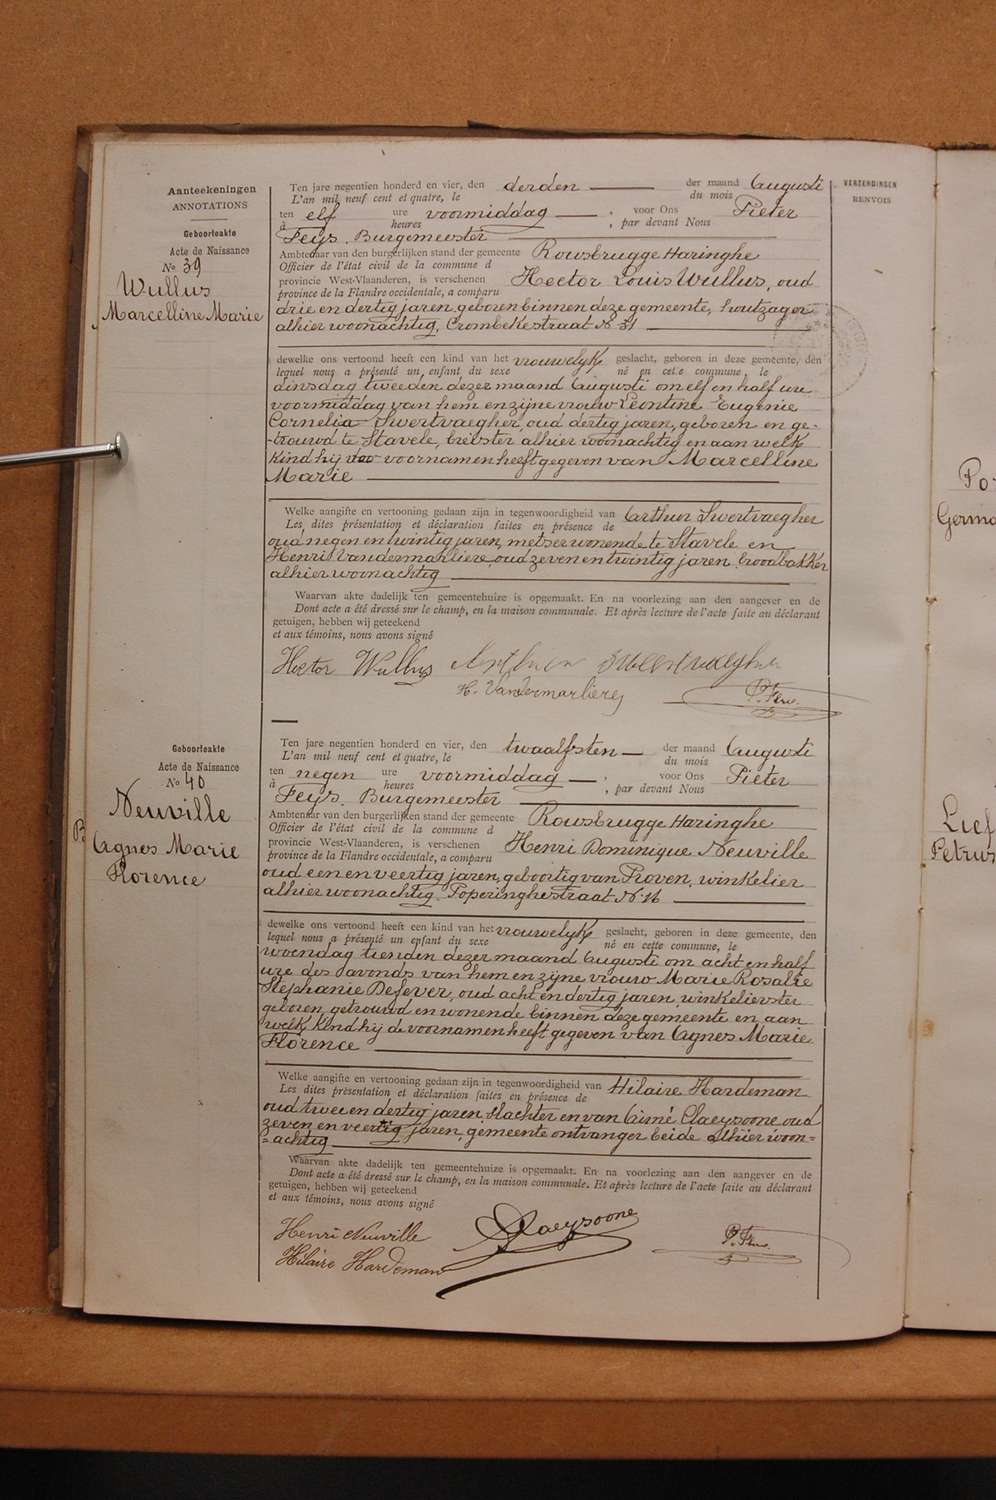 Aanteekeningen
ANNOTATIONS
Geboorteakte
Acte de Naissance
No 39
Wullus
Marcelline Marie
Ten jare negentien honderd en vier, den derden der maand Augusti
L'an mil neuf cent et quatre, le du mois
ten elf ure voormiddag, voor Ons Pieter
à heures, par devant Nous
Feys, Burgemeester
Ambtenaar van den burgerlijken stand der gemeente Rousbrugge Haringhe
Officier de l'état civil de la commune d
provincie West-Vlaanderen, is verschenen Hector Louis Wullus, oud
province de la Flandre occidentale, a comparu
drie en dertig jaren, geboren binnen deze gemeente, houtzager
alhier woonachtig, Crombekestraat No 31
dewelke ons vertoond heeft een kind van het vrouwelyk geslacht, geboren in deze gemeente, den
lequel nous a présenté un enfant du sexe né en cette commune, le
dinsdag tweeden dezer maand Augusti om elf en half ure
voormiddag van hem en zijne vrouw Leontine Eugenie
Cornelia Swertvaegher, oud dertig jaren, geboren en ge-
-trouwd te Stavele, alhier woonachtig en aan welk
kind hij voornamen heeft gegeven van Marcelline
Marie
Welke aangifte en vertooning gedaan zijn in tegenwoordigheid van Arthur Swertvaegher
Les dites présentation et déclaration faites en présence de
oud negen en twintig jaren, metser wonende te Stavele en
Henri Vandermarliere, oud zeven en twintig jaren, broodbakker
alhier woonachtig
Waarvan akte dadelijk ten gemeentehuize is opgemaakt. En na voorlezing aan den aangever en de
Dont acte a été dressé sur le champ, en la maison communale. Et après lecture de l'acte faite au déclarant
getuigen, hebben wij geteekend
et aux témoins, nous avons signé
Hector Wullus Arthur Swertvaegher
H. Vandermarliere P. Feys
VERZENDINGEN
RENVOIS
Geboorteakte
Acte de Naissance
No 40
Neuville
Agnes Marie
Florence
Ten jare negentien honderd en vier, den twaalfsten der maand Augusti
L'an mil neuf cent et quatre, le du mois
ten negen ure voormiddag, voor Ons Pieter
à heures, par devant Nous
Feys, Burgemeester
Ambtenaar van den burgerlijken stand der gemeente Rousbrugge Haringhe
Officier de l'état civil de la commune d
provincie West-Vlaanderen, is verschenen Henri Dominique Neuville
province de la Flandre occidentale, a comparu
oud een en veertig jaren, geboortig van Proven, winkelier
alhier woonachtig, Poperinghestraat No 16
dewelke ons vertoond heeft een kind van het vrouwelyk geslacht, geboren in deze gemeente, den
lequel nous a présenté un enfant du sexe né en cette commune, le
woensdag tienden dezer maand Augusti om acht en half
ure des avonds van hem en zijne vrouw Marie Rosalie
Stephanie Defever, oud acht en dertig jaren, winkelierster
geboren, getrouwd en wonende binnen deze gemeente en aan
welk kind hij de voornamen heeft gegeven van Agnes Marie
Florence
Welke aangifte en vertooning gedaan zijn in tegenwoordigheid van Hilaire Hardeman
Les dites présentation et déclaration faites en présence de
oud twee en dertig jaren, slachter en van Aimé Claeysoone oud
zeven en veertig jaren, gemeente ontvanger beide alhier woon=
=achtig
Waarvan akte dadelijk ten gemeentehuize is opgemaakt. En na voorlezing aan den aangever en de
Dont acte a été dressé sur le champ, en la maison communale. Et après lecture de l'acte faite au déclarant
getuigen, hebben wij geteekend
et aux témoins, nous avons signé
Henri Neuville Claeysoone P. Feys
Hilaire Hardeman
Po
Germa
Lief
Petrus